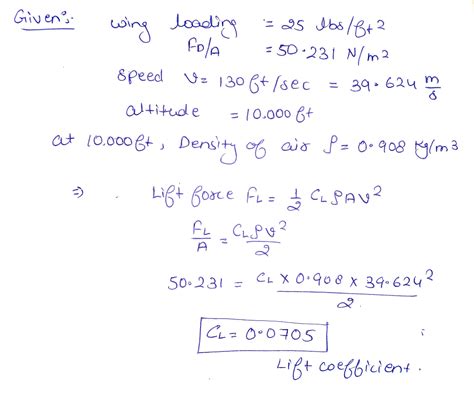 Given:- wing loading = 25 lbs/ft2
FD/A = 50.231 N/m2
Speed v = 130 ft/sec = 39.624 m/s
altitude = 10,000 ft
at 10,000 ft, Density of air ρ = 0.908 kg/m3
⇒ . Lift force FL = 1/2 CL ρAv²
FL/A = CLρv²/2
50.231 = CL × 0.908 × 39.624²/2
CL = 0.0705
Lift coefficient.